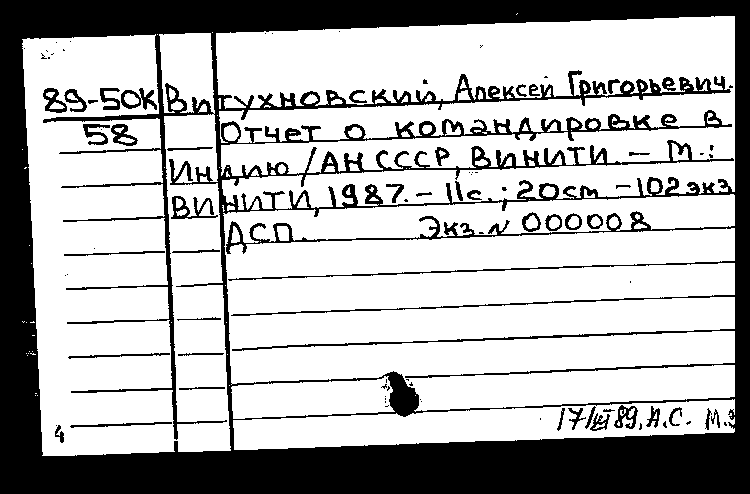 89-50К Витухновский, Алексей Григорьевич.
58 Отчет о командировке в
Индию / АН СССР, ВИНИТИ. – М.:
ВИНИТИ, 1987. – 11с.; 20см – 102экз
ДСП. Экз. № 000008
4 17/VII 89, Н.С.